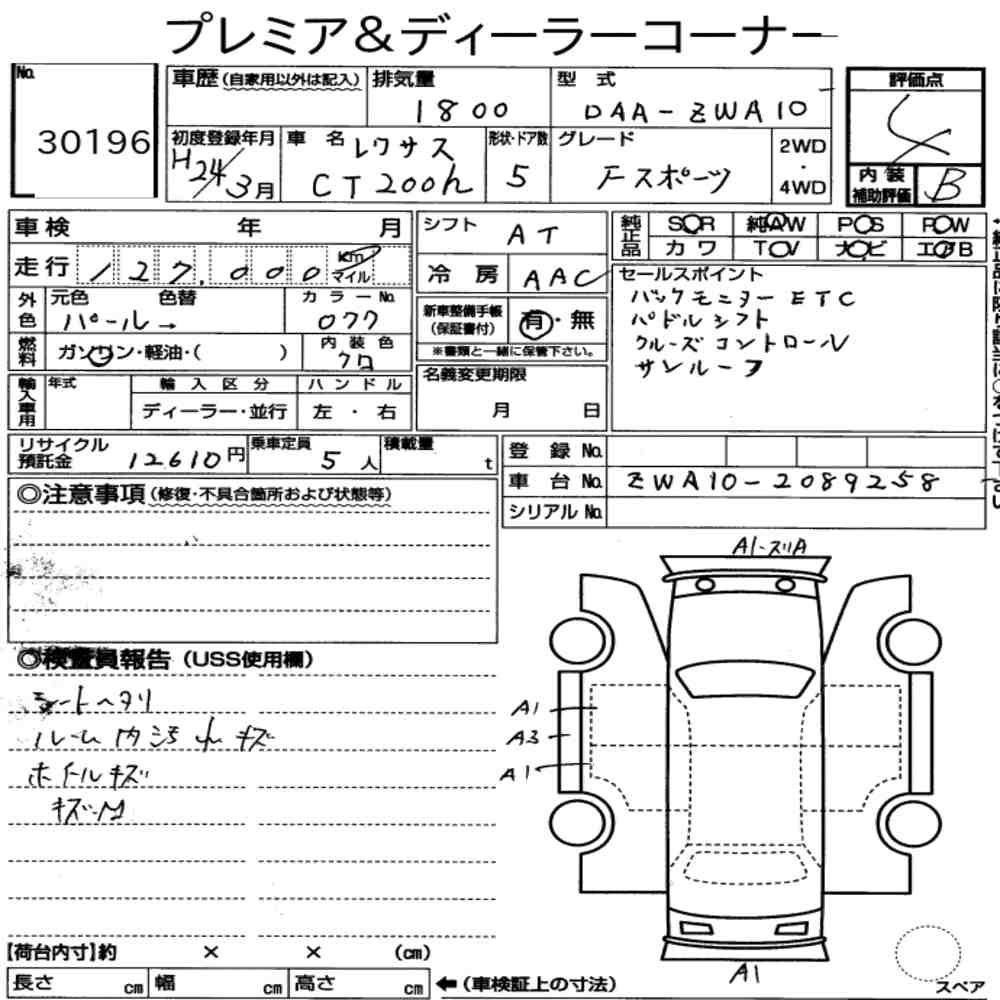 プレミア&ディーラーコーナー
No. 30196
車歴(自家用以外は記入)
排気量 1800
型式 DAA-ZWA10
評価点 4
初度登録年月 H24/3月
車名 レクサス CT200h
形状・ドア数 5
グレード Fスポーツ
2WD・4WD
内装補助評価 B
車検 年 月
シフト AT
純正品 SR 純AW PS PW
カワ TV ナビ エアB
走行 127,000 km マイル
冷房 AAC
セールスポイント
バックモニター ETC
パドルシフト
クルーズコントロール
サンルーフ
外色 元色 パール→ 色替
カラーNo. 077
新車整備手帳(保証書付) 有・無
※書類と一緒に保管下さい。
燃料 ガソリン・軽油・( )
内装色 クロ
輸入車用 年式
輸入区分 ディーラー・並行
ハンドル 左・右
名義変更期限 月 日
リサイクル預託金 12610円
乗車定員 5人
積載量 t
登録No.
車台No. ZWA10-2089258
シリアルNo.
◎注意事項(修復・不具合箇所および状態等)
◎検査員報告(USS使用欄)
シートヘタリ
ルーム内汚れキズ
ホイールキズ
A1-スリA
A1
A3
A1
A1
【荷台内寸】約 × × (cm)
長さ cm 幅 cm 高さ cm ←(車検証上の寸法)
スペア